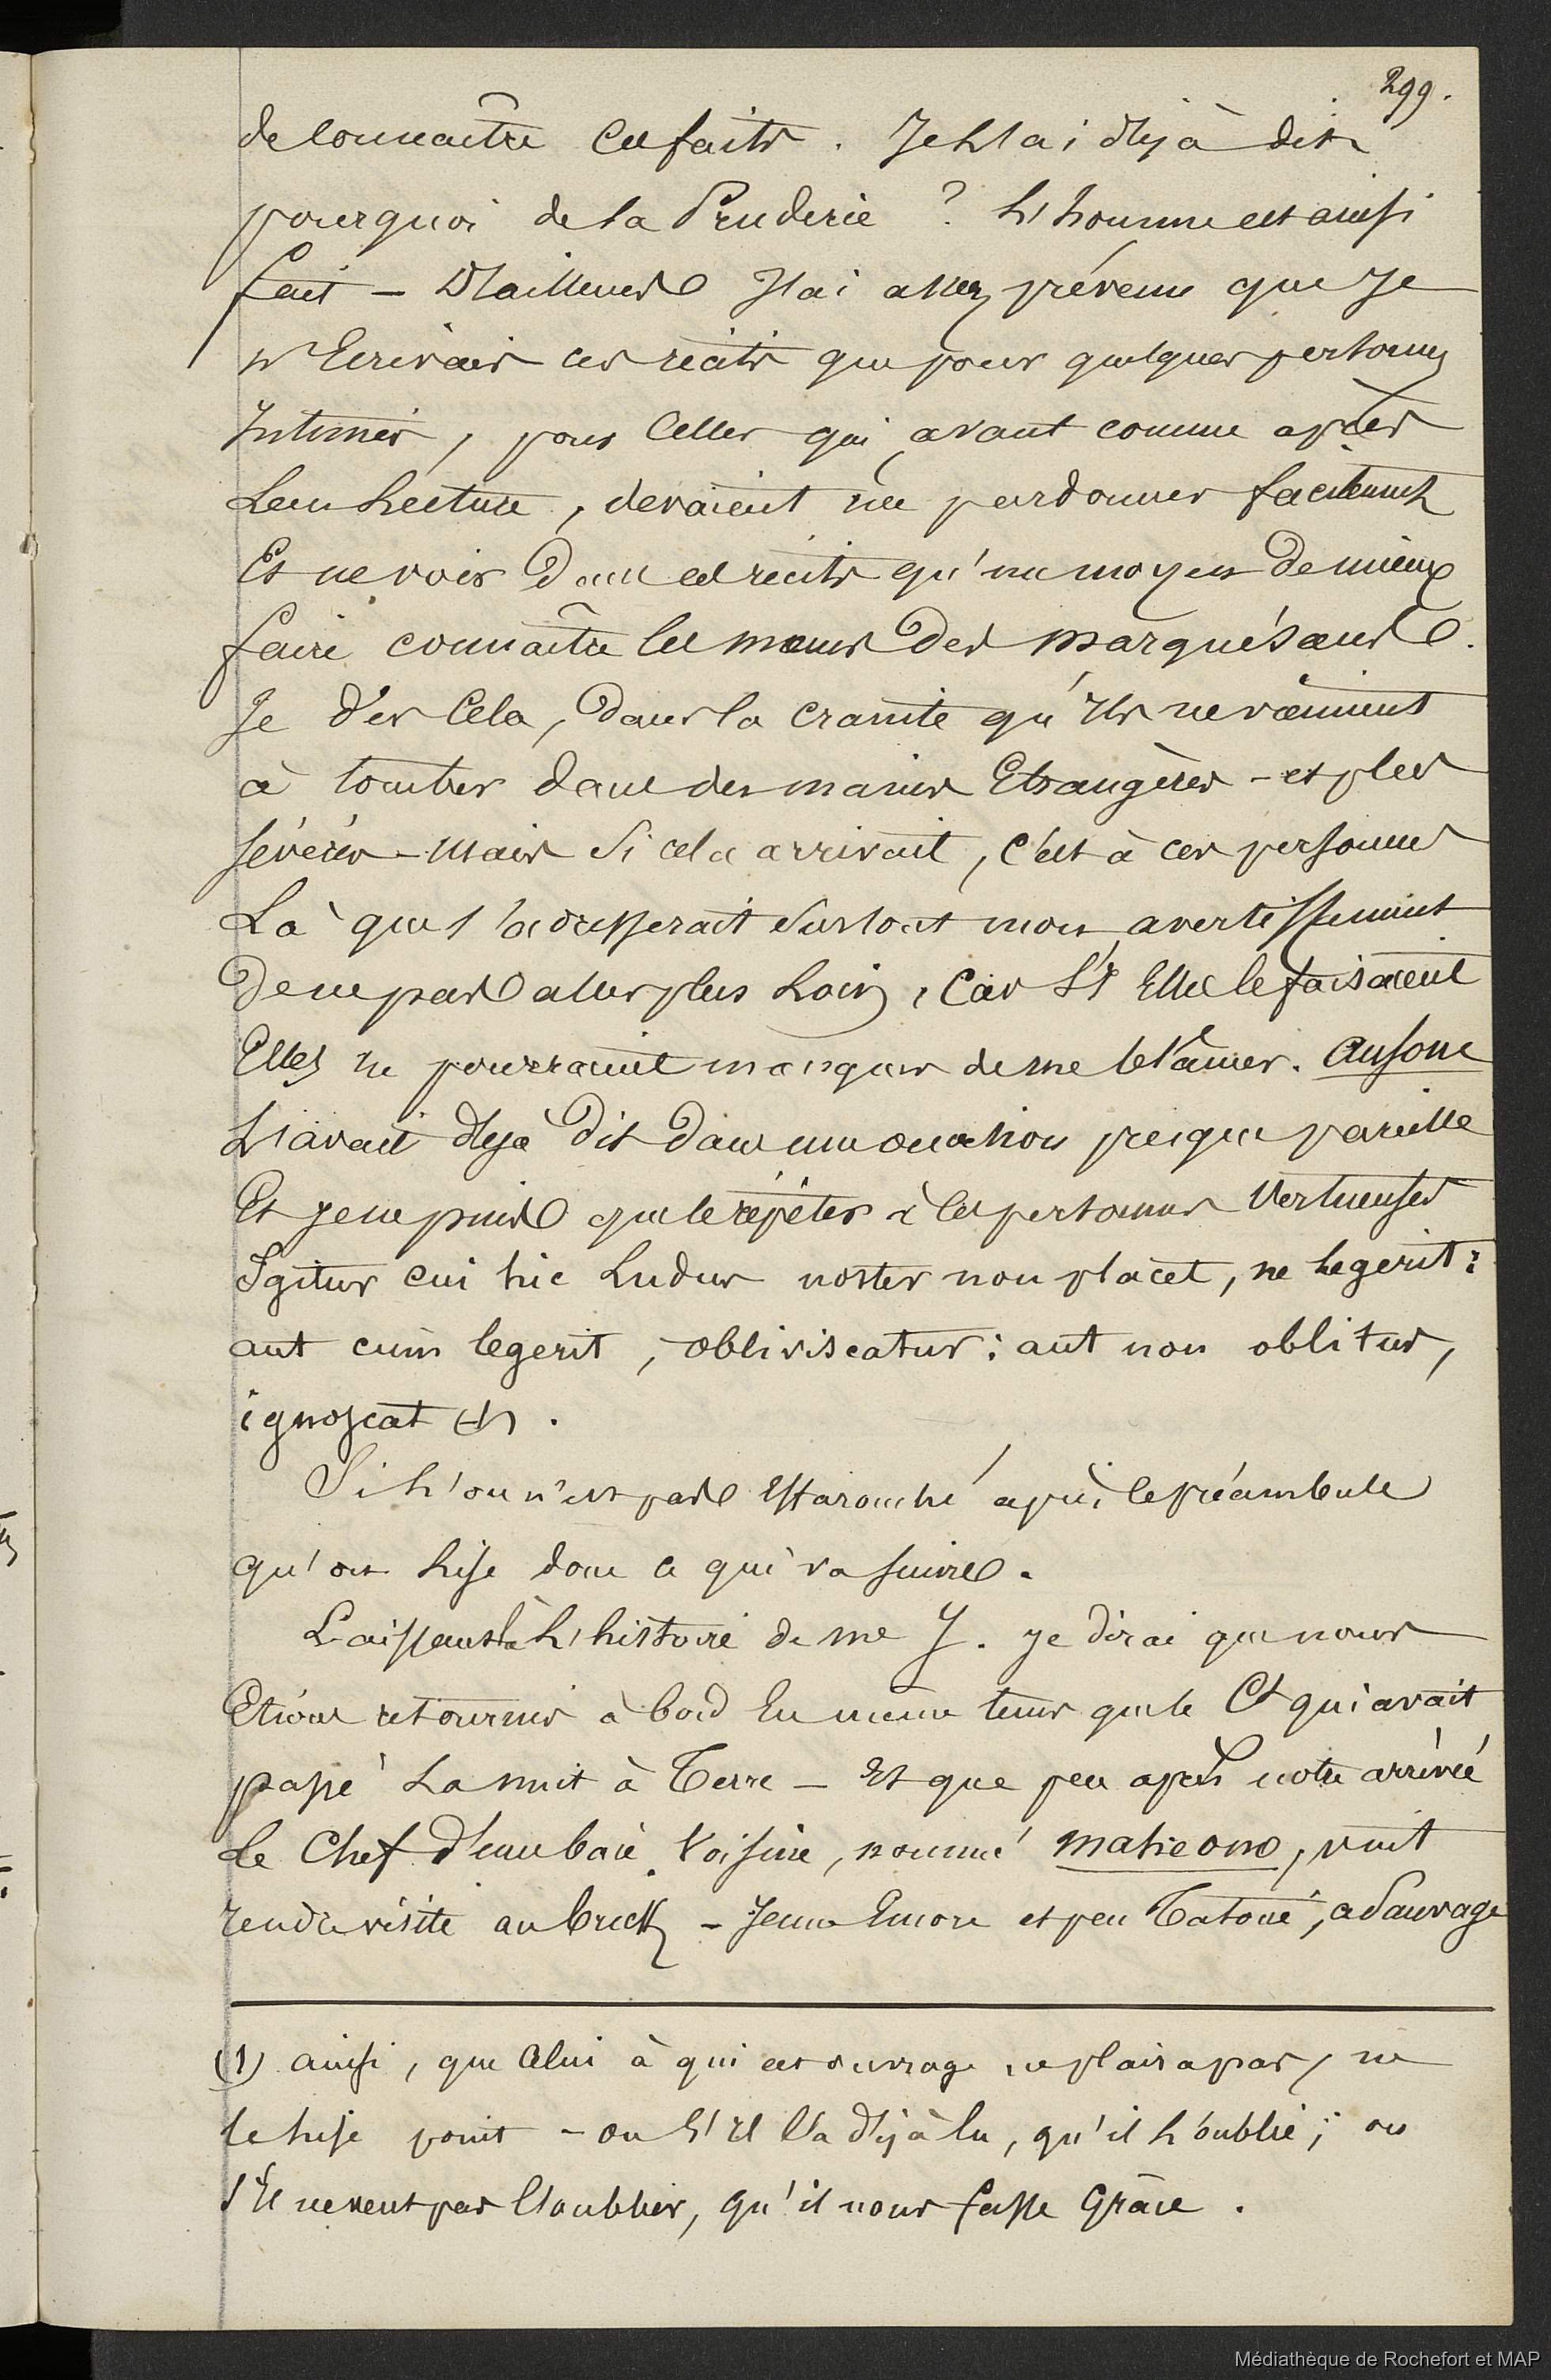 299.
de connaître ces faits. Je l'ai déjà dit
pourquoi de la Pruderie ? L'homme est ainsi
fait – D'ailleurs J'ai assez prévenu que Je
n'Ecrivais ces récits que pour quelques personnes
Intimes, pour Celles qui avant comme après
Leur Lecture, devaient me pardonner facilement
Et ne voir Dans ces récits qu'un moyen De mieux
faire connaître les mœurs Des Marquésans.
Je dis Cela, Dans la crainte qu'Ils ne viennent
à tomber dans des mains Etrangères – et plus
sévères – Mais Si cela arrivait, c'est à ces personnes
Là que s'adresserait surtout mon avertissement
De ne pas aller plus Loin, Car S'I Elles le faisaient
Elles ne pourraient manquer de me blâmer. Ausone
L'avait déjà Dit Dans une occasion presque pareille
Et je ne puis que le répéter à ces personnes Vertueuses
Igitur cui hic Ludus noster non placet, ne legerit :
aut cum legerit, obliviscatur : aut non oblitus,
ignoscat (1).
Si L'on n'est pas Effarouché après le préambule
qu'on Lise donc ce qui va suivre.
Laissant là L'histoire de Me J. je dirai que nous
Etions retournés à bord En même tems que le Ct qui avait
passé La nuit à Terre – Et que peu après notre arrivée
Le Chef d'une baie Voisine, nommé Maheono, vint
rendre visite au brick – Jeune Encore et peu Tatoué, a Sauvage
(1) ainsi, que Celui à qui cet ouvrage ne plaira pas, ne
le Lise point – ou S'Il l'a déjà lu, qu'il L'oublie ; ou
S'Il ne veut pas l'oublier, qu'il nous fasse Grâce.
Médiathèque de Rochefort et MAP